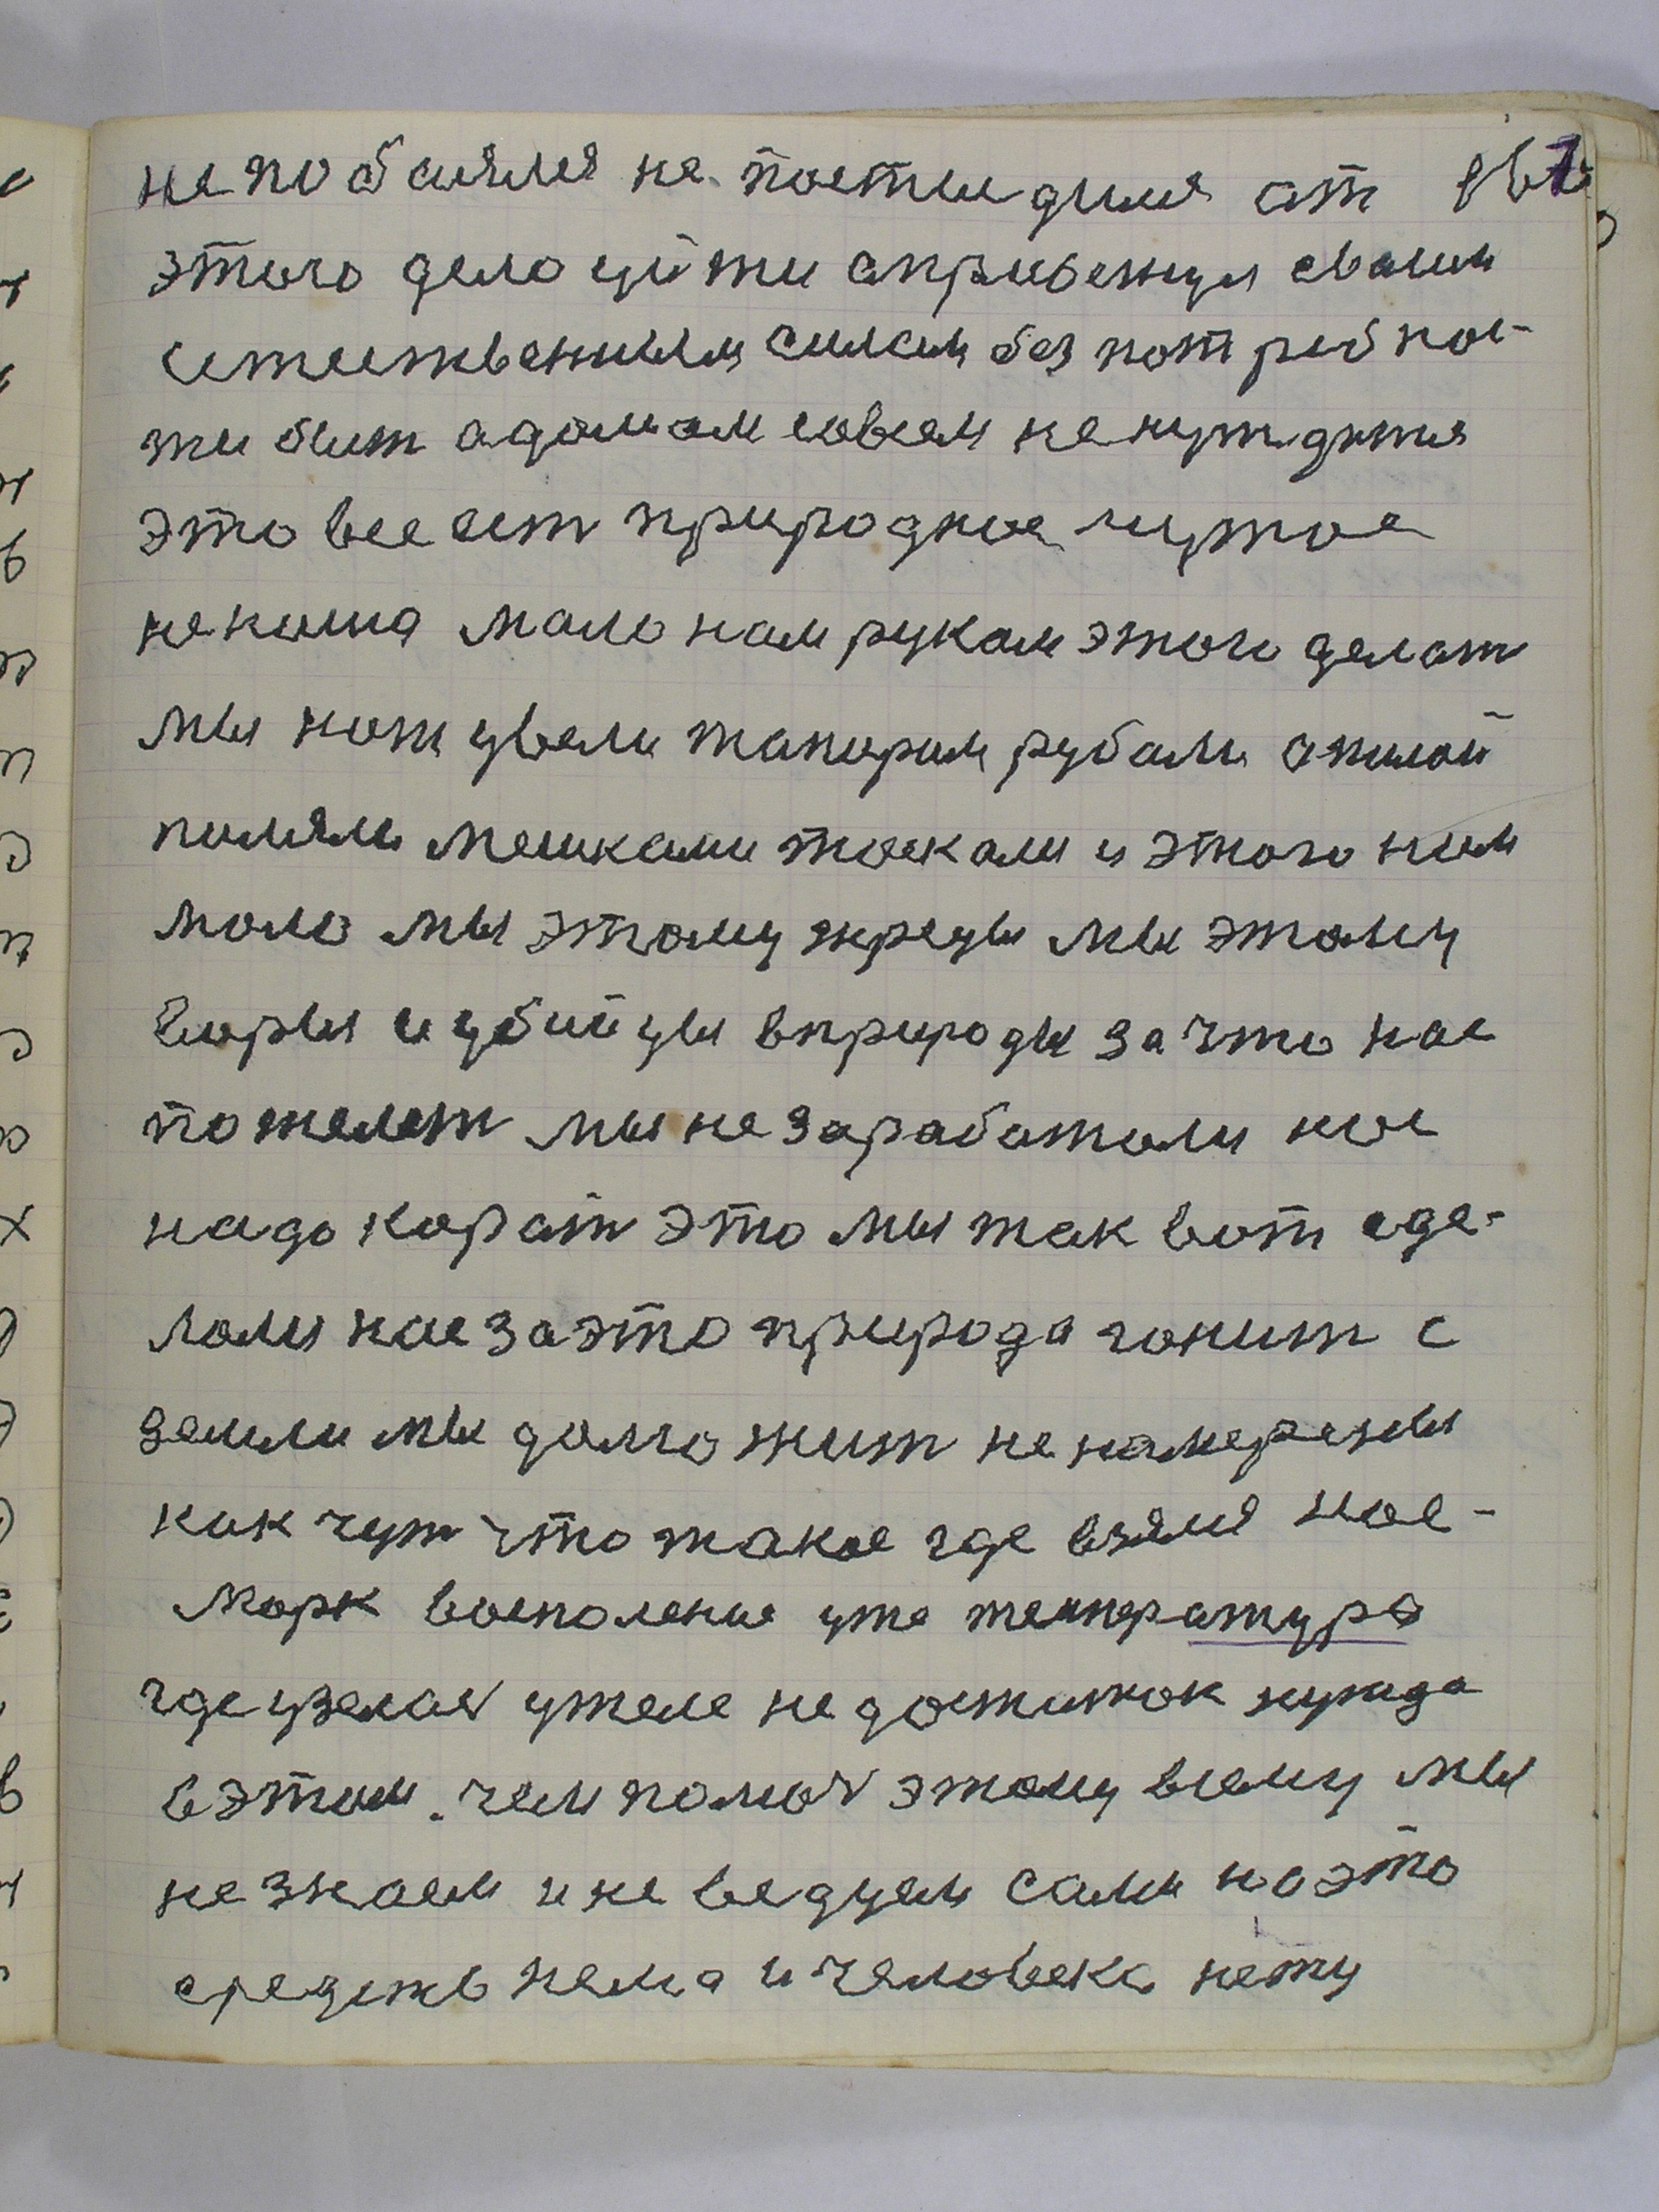 не побаялся не постыдился ат
этого дело уйти апривенцул сваим
естественыем силам без потребнос-
ти быт адомам совсем ненуждится
это все ест природное чужое
некома мало нам рукам этого делат
мы нош увели тапором рубали апилой
пиляли мешками таскали и этого нам
мало мы этому жрецы мы этому
воры и убийцы вприроды за что нас
пожелет мы не заработали нас
надо карат это мы так вот сде-
лали нас за это природа гонит с
земли мы долго жит не намерены
как чут что такое где взялся нас-
морк воспаление уже температура
где узелал ужеле не достаток нужда
в этом. чем помоч этому всему мы
не знаем и не ведуем сами на это
средств нема и человека нету